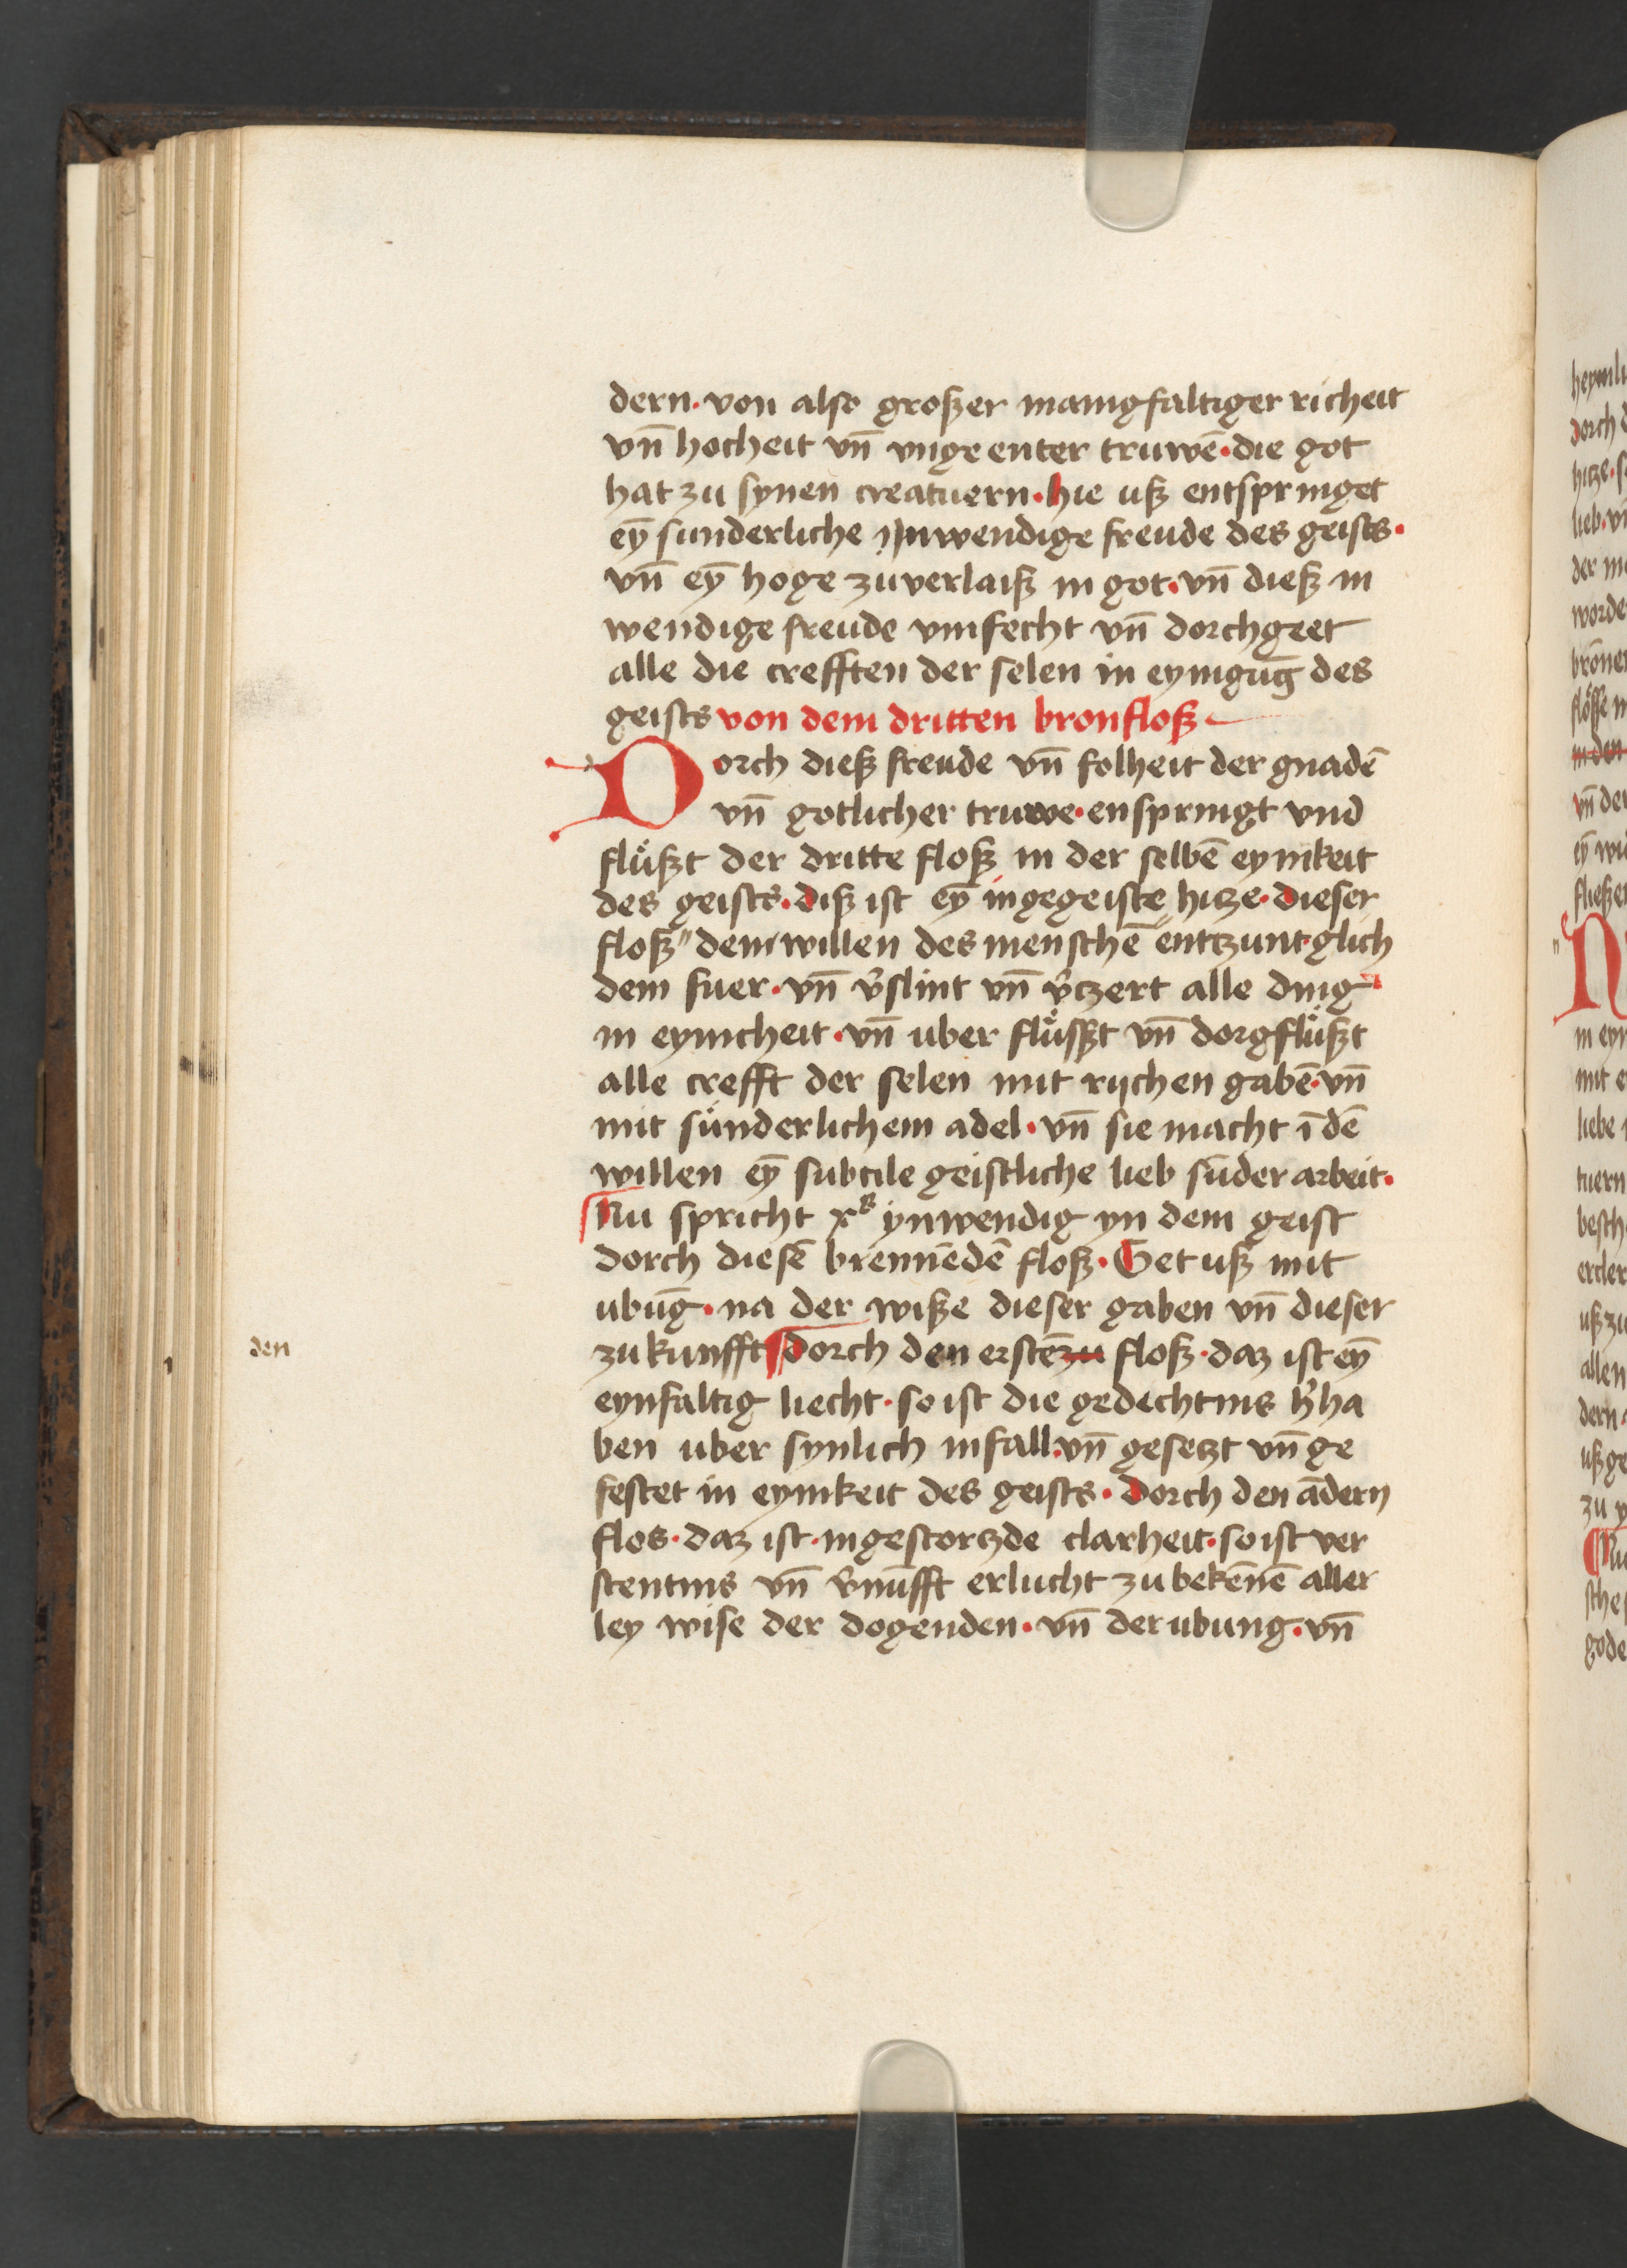 dern · von also großer manigfaltiger richeit
vn̄ hocheit vn̄ vngeenter truwē · die got
hat zu synen creatuern · hie uß entspringet
eȳ sunderliche ynwendige freude des geists ·
vn̄ eȳ hoge zuverlaiß in got · vn̄ dieß in
wendige freude vmfecht vn̄ dorchgeet
alle die crefften der selen in eynigūg des
geists von dem dritten bronfloß
Dorch dieß freude vn̄ folheit der gnadē
vn̄ gotlicher truwe · enspringt vnd
flüßt der dritte floß in der selbē eynikeit
des geists · diß ist eȳ ingegeiste hitze · dieser
floß " dem willen des menschē " entzunt · glich
dem fuer · vn̄ v̄slint vn̄ v̄tzert alle ding
in eynicheit · vn̄ uber flüsßt vn̄ dorgflüßt
alle crefft der selen mit rijchen gabē · vn̄
mit sünderlichem adel · vn̄ sie macht ī dē
willen eȳ subtile geistliche lieb sūder arbeit ·
Nu spricht xp̄s ynwendig yn dem geist
dorch diesē brennēdē floß · Get uß mit
ubūg · na der wiße dieser gaben vn̄ dieser
zukunfft dorch den erstē zu floß · daz ist eȳ
eynfaltig liecht · so ist die gedechtnis h̄ha
ben uber synlich infall · vn̄ gesetzt vn̄ ge
festet in eynikeit des geists · dorch den ādern
flos · daz ist · ingestortzde clarheit · so ist ver
stentnis vn̄ v̄nūfft erlucht zu bekēnē aller
ley wise der dogenden · vn̄ der ubung · vn̄
den